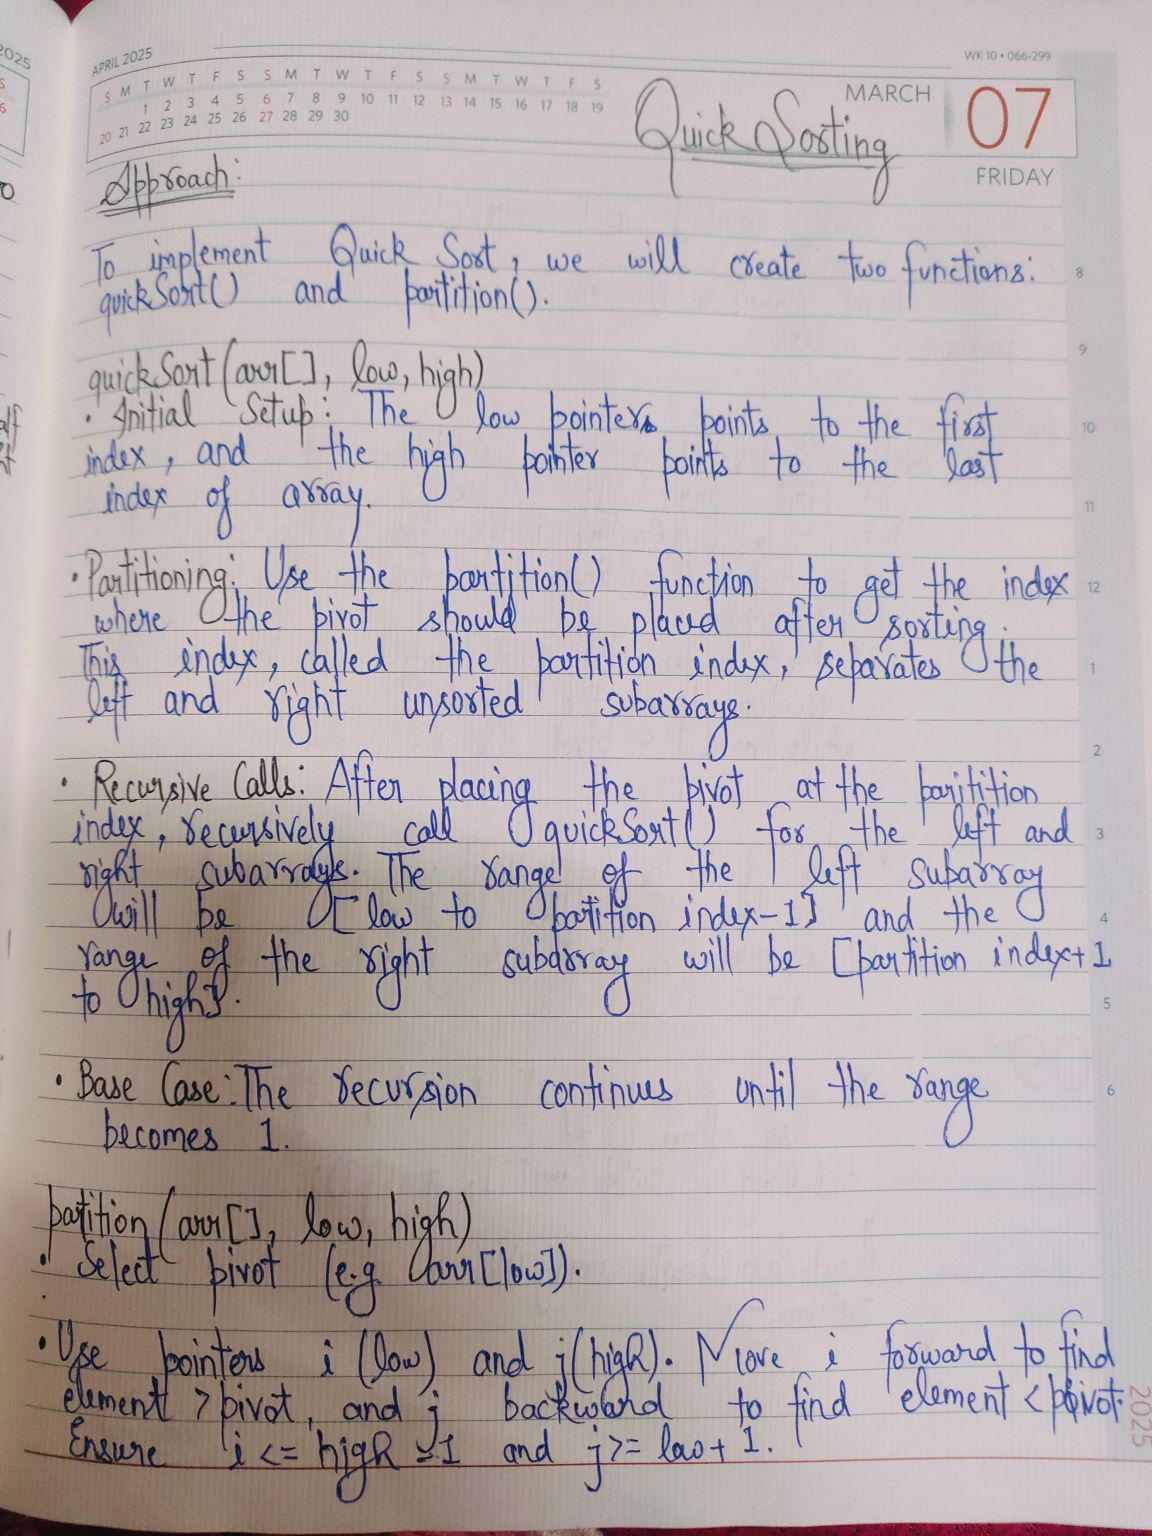 2025
S
6
APRIL 2025
WK 10 • 066-299
S M T W T F S S M T W T F S S M T W T F S
1 2 3 4 5 6 7 8 9 10 11 12 13 14 15 16 17 18 19
20 21 22 23 24 25 26 27 28 29 30
MARCH 07
FRIDAY
Quick Sorting
Approach:
To implement Quick Sort, we will create two functions: 8
quickSort() and partition().
9
quickSort(arr[], low, high)
• Initial Setup: The low pointers points to the first 10
index, and the high pointer points to the last
index of array. 11
• Partitioning: Use the partition() function to get the index 12
where the pivot should be placed after sorting.
This index, called the partition index, separates the 1
left and right unsorted subarrays.
2
• Recursive Calls: After placing the pivot at the parition
index, recursively call quickSort() for the left and 3
right subarrays. The range of the left subarray
will be [low to partition index-1] and the 4
range of the right subarray will be [partition index+1
to high]. 5
• Base Case: The recursion continues until the range 6
becomes 1.
partition(arr[], low, high)
• Select pivot (e.g. arr[low]).
• Use pointers i (low) and j(high). Move i forward to find
element > pivot, and j backward to find element < pivot.
Ensure i <= high -1 and j >= low + 1.
2025